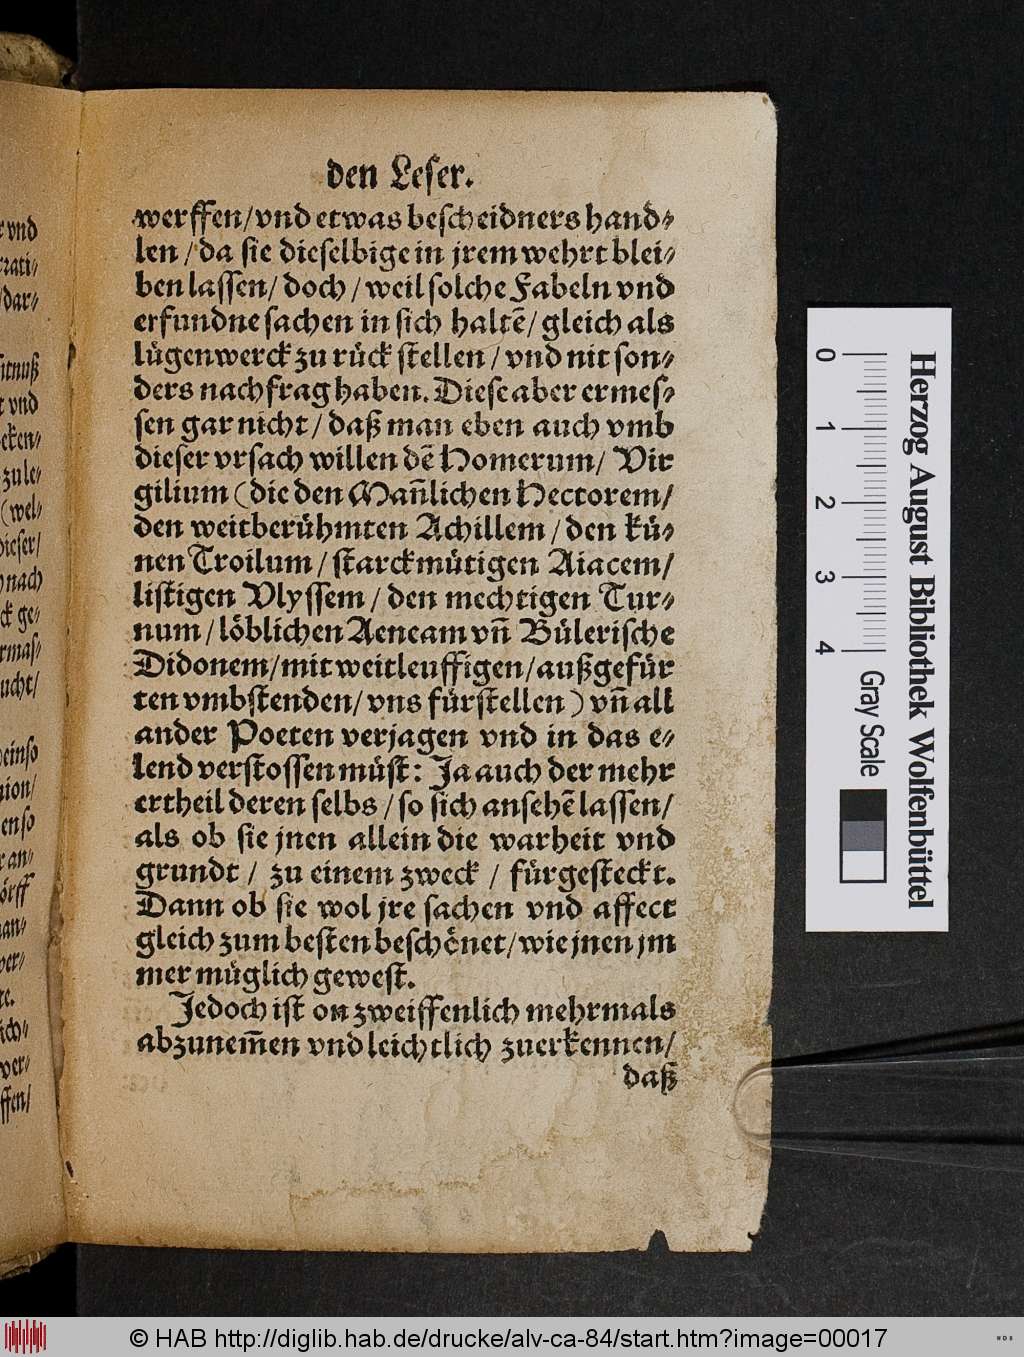 den Leser.
werffen/vnd etwas bescheidners hand⸗
len / da sie dieselbige in jrem wehrt blei⸗
ben lassen/ doch / weil solche Fabeln vnd
erfundne sachen in sich haltẽ/ gleich als
lügenwerck zu rück stellen / vnd nit son⸗
ders nachfrag haben. Diese aber ermes⸗
sen gar nicht / daß man eben auch vmb
dieser vrsach willen dẽ Homerum/ Vir
gilium (die den Mañlichen Hectorem/
den weitberühmten Achillem / den kü⸗
nen Troilum / starckmütigen Aiacem/
listigen Vlyssem / den mechtigen Tur⸗
num / löblichen Aeneam vñ Bülerische
Didonem/mit weitleuffigen/außgefür
ten vmbstenden/ vns fürstellen ) vñ all
ander Poeten verjagen vnd in das e⸗
lend verstossen müst: Ja auch der mehr
ertheil deren selbs / so sich ansehẽ lassen/
als ob sie jnen allein die warheit vnd
grundt / zu einem zweck / fürgesteckt.
Dann ob sie wol jre sachen vnd affect
gleich zum besten beschönet/wie jnen jm
mer müglich gewest.
Jedoch ist on zweiffenlich mehrmals
abzunem̃en vnd leichtlich zuerkennen/
daß
vnd
rati⸗
/dar⸗
tnuß
t vnd
eken⸗
zu le⸗
(wel⸗
dieser/
nach
ck ge⸗
rmas⸗
ucht/
ein so
ion/
en so
r an⸗
örff
an⸗
ver⸗
te.
ich⸗
ver⸗
ffen/
Herzog August Bibliothek Wolfenbüttel
0 1 2 3 4
Gray Scale
© HAB http://diglib.hab.de/drucke/alv-ca-84/start.htm?image=00017